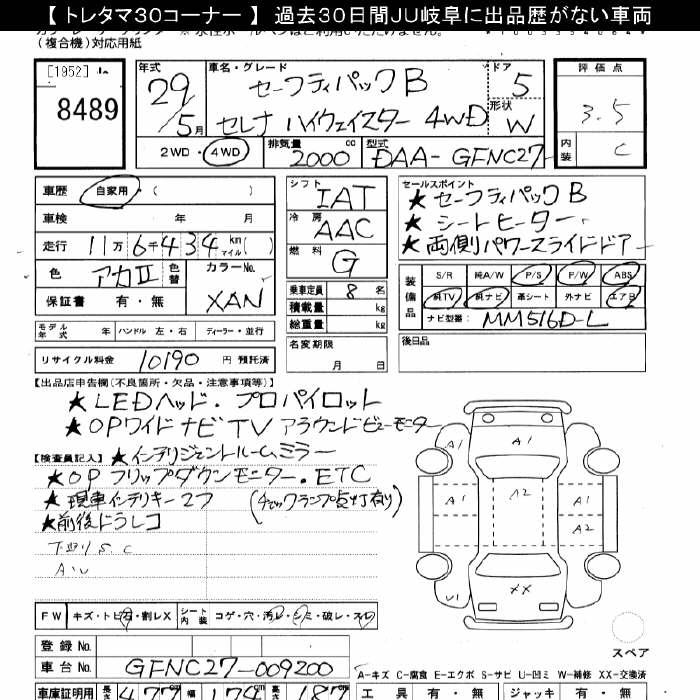 【 トレタマ30コーナー 】 過去30日間JU岐阜に出品歴がない車両
(複合機)対応用紙
[1952]
8489
年式
29
5月
車名・グレード
セーフティパックB
セレナ ハイウェイスター 4WD
ドア
5
形状
W
評価点
3.5
内装
C
2WD・4WD
排気量
2000cc
型式
DAA-GFNC27
車歴 自家用・( )
車検 年 月
走行 11万6千434km マイル( )
色 アカII 色替
カラーNo. XAN
保証書 有・無
シフト IAT
冷房 AAC
燃料 G
乗車定員 8名
積載量 kg
総重量 kg
名変期限
月 日
セールスポイント
★セーフティパックB
★シートヒーター
★両側パワースライドドアー
装備品
S/R 純A/W P/S P/W ABS
純TV 純ナビ 革シート 外ナビ エアB
ナビ型番: MM516D-L
後日品
モデル年式 年 ハンドル 左・右 ディーラー・並行
リサイクル料金 10190 円 預託済
【出品店申告欄(不良箇所・欠品・注意事項等)】
★LEDヘッド.プロパイロット
★OPワイドナビTV アラウンドビューモニター
【検査員記入】 ★インテリジェントルームミラー
★OPフリップダウンモニター.ETC
★現車インテリキー2つ (チェックランプ点灯有り)
★前後ドラレコ
下廻りS.C
A.U
A1
A1
A1
A2
A1
A2
U1
XX
FW キズ・トビ石・割レX シート内装 コゲ・穴・汚レ・シミ・破レ・スレ
スペア
登録No.
車台No. GFNC27-009200
A-キズ C-腐食 E-エクボ S-サビ U-凹ミ W-補修 XX-交換済
車庫証明用 長さ 477cm 幅 174cm 高さ 187cm
工具 有・無 ジャッキ 有・無